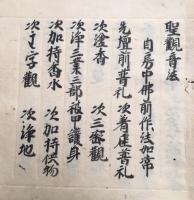 聖觀音法
自房中佛前作法如常
先壇前普礼 次着座普礼
次塗香 次三密觀
次淨三業三部被甲護身
次加持香水 次加持供物
次㘕字觀 次淨地